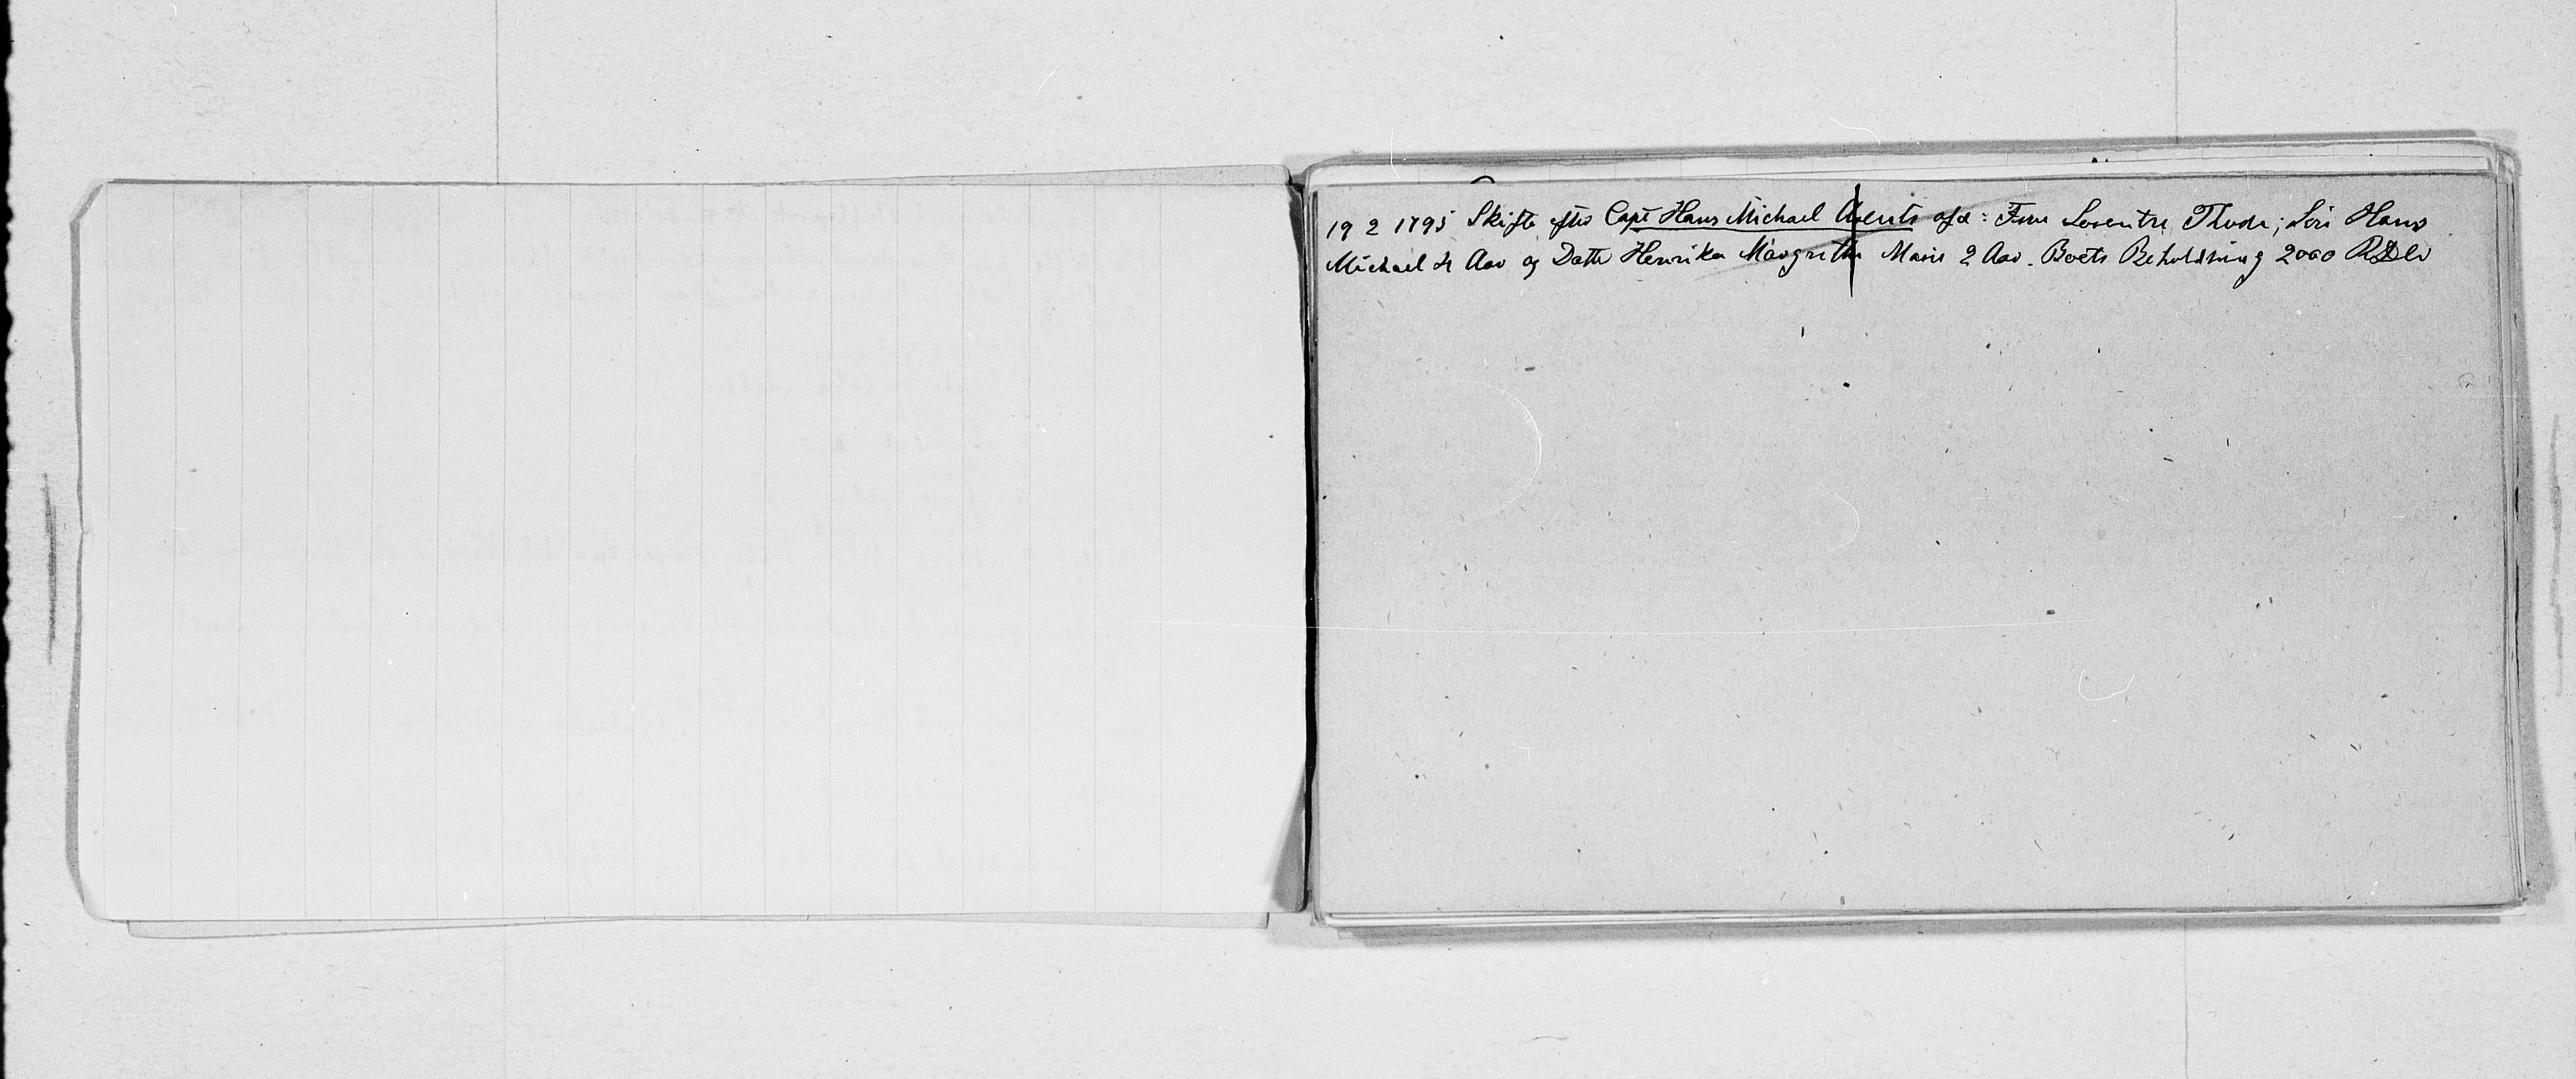 19 2 1795 Skifte efter Capt Hans Michael Arents afd: Frue Loventre Thode; Sön Hans
Michael 4 Aar og Datte Henrika Margrethe Marie 2 Aar. Boets Beholdning 2000 RDlr